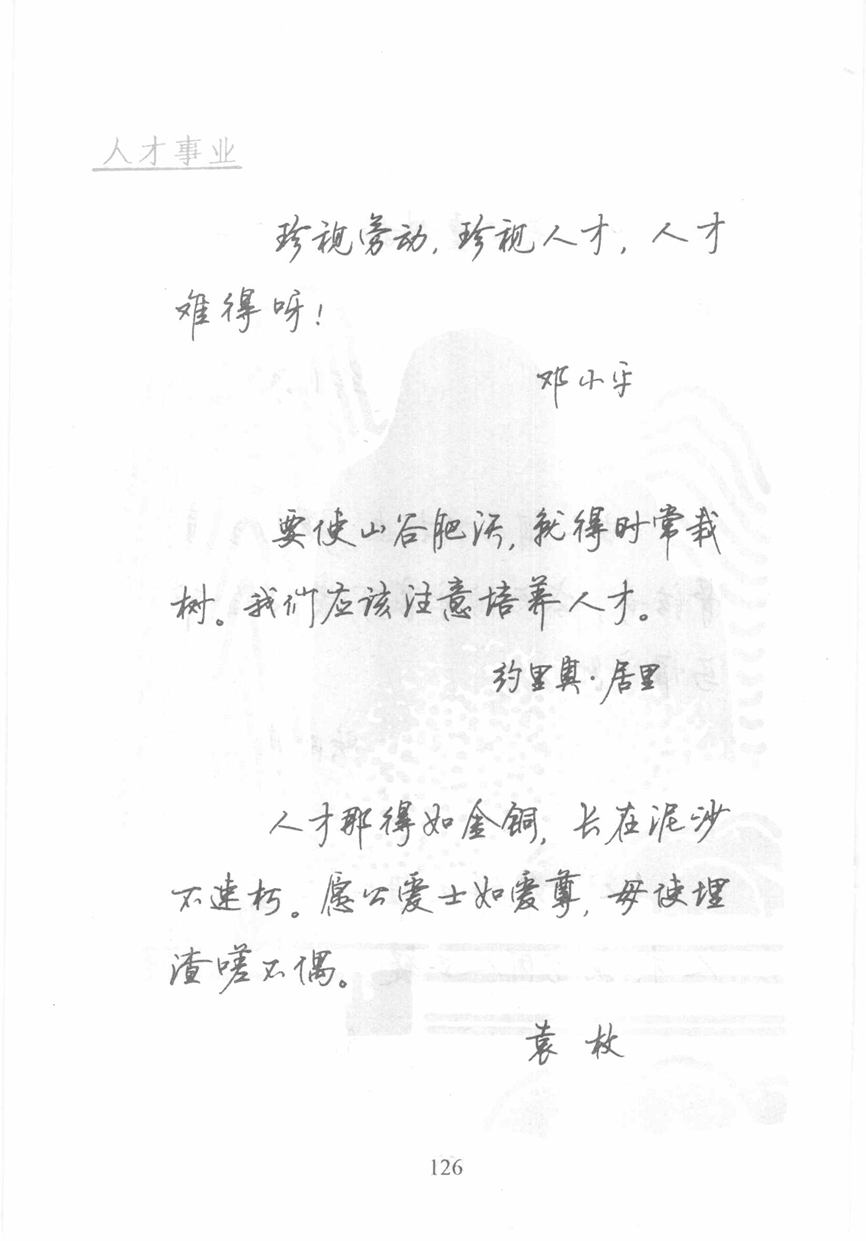 人才事业
珍视劳动，珍视人才，人才
难得呀！
邓小平
要使山谷肥沃，就得时常栽
树。我们应该注意培养人才。
约里奥·居里
人才那得如金铜，长在泥沙
不速朽。愿公爱士如爱尊，毋使埋
渣嗟不偶。
袁枚
126